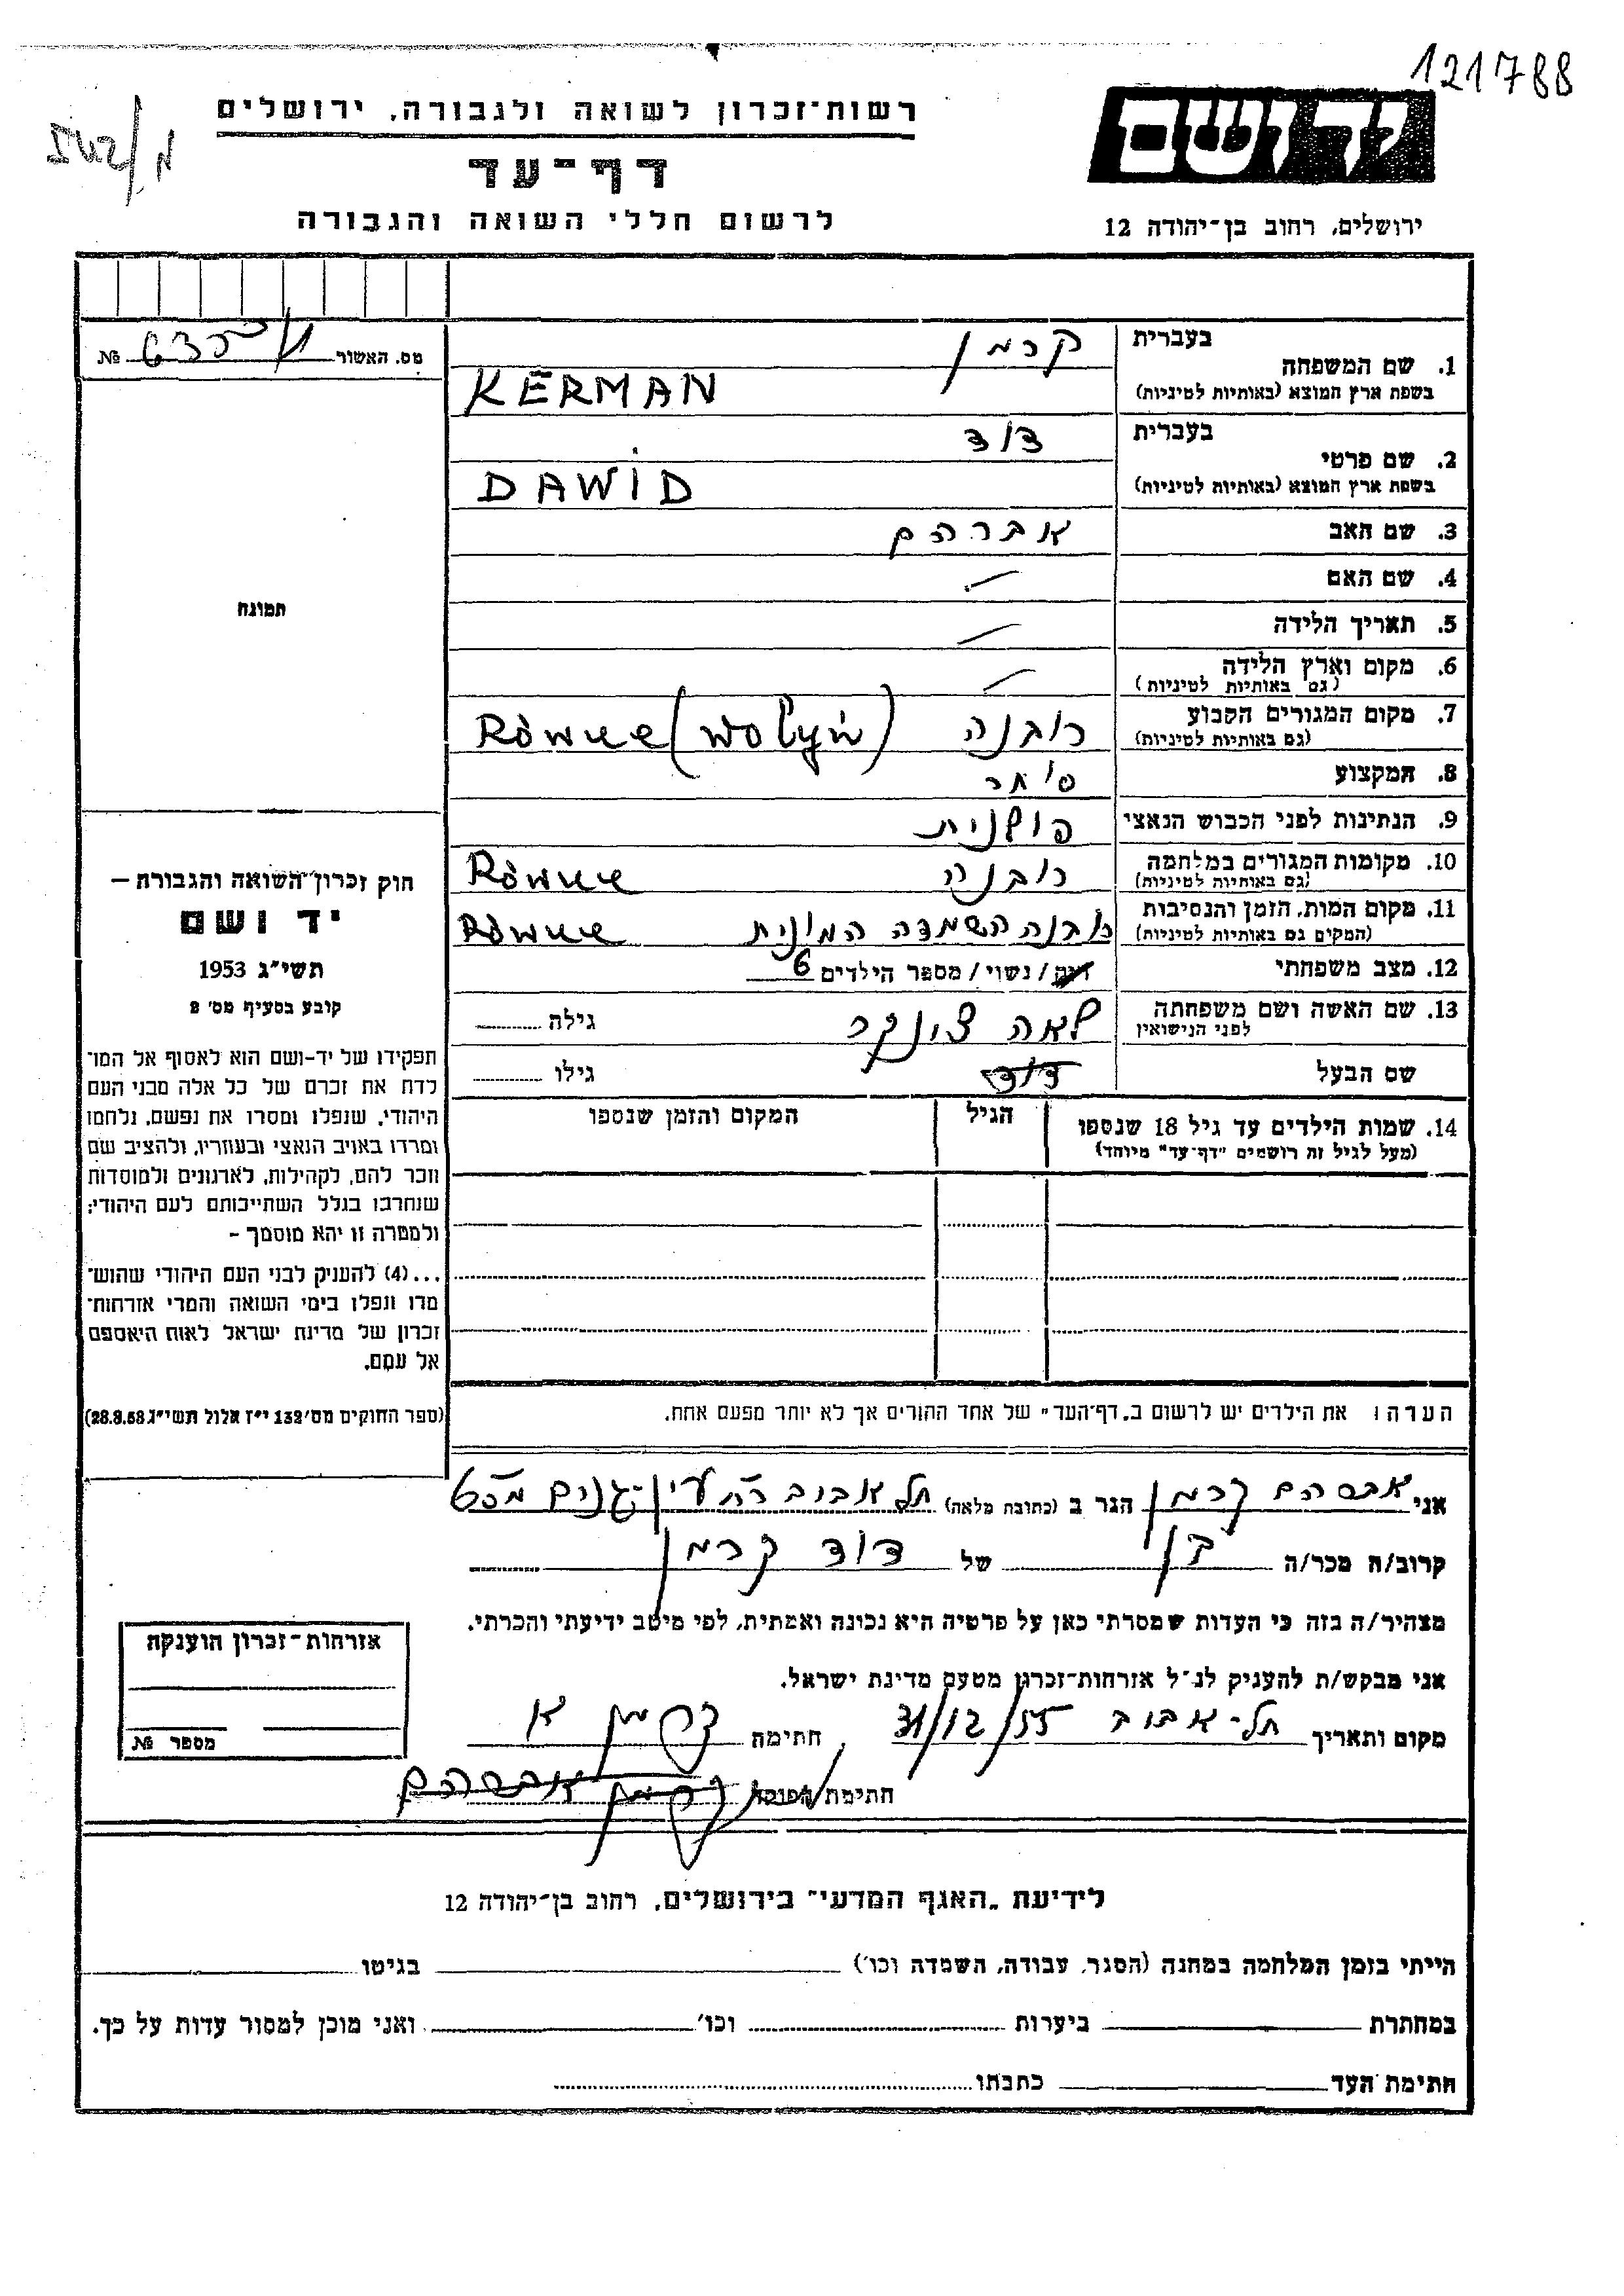 121788
רשות-זכרון לשואה ולגבורה, ירושלים
דף-עד
לרשום חללי השואה והגבורה
יד ושם
ירושלים, רחוב בן-יהודה 12
מס. האשור № 635
1. שם המשפחה
בעברית קרמן
בשפת ארץ המוצא (באותיות לטיניות) KERMAN
2. שם פרטי
בעברית דוד
בשפת ארץ המוצא (באותיות לטיניות) DAWID
3. שם האב אברהם
4. שם האם
5. תאריך הלידה
6. מקום וארץ הלידה
(גם באותיות לטיניות)
7. מקום המגורים הקבוע רובנה Równe (Wołyń)
(גם באותיות לטיניות)
8. המקצוע סוחר
9. הנתינות לפני הכבוש הנאצי פולנית
10. מקומות המגורים במלחמה רובנה Równe
(גם באותיות לטיניות)
11. מקום המות, הזמן והנסיבות רובנה השמדה המונית Równe
(המקום גם באותיות לטיניות)
12. מצב משפחתי רוק/ נשוי/ מספר הילדים 6
13. שם האשה ושם משפחתה לאה גילה
לפני הנישואין
שם הבעל דוד גילו
14. שמות הילדים עד גיל 18 שנספו הגיל המקום והזמן שנספו
(מעל לגיל זה רושמים "דף-עד" מיוחד)
תמונה
חוק זכרון השואה והגבורה –
יד ושם
תשי"ג 1953
קובע בסעיף מס' 2
תפקידו של יד-ושם הוא לאסוף אל המו־
לדת את זכרם של כל אלה מבני העם
היהודי, שנפלו ומסרו את נפשם, נלחמו
ומרדו באויב הנאצי ובעוזריו, ולהציב שם
וזכר להם, לקהילות, לארגונים ולמוסדות
שנחרבו בגלל השתייכותם לעם היהודי;
ולמטרה זו יהא מוסמך –
...(4) להעניק לבני העם היהודי שהוש־
מדו ונפלו בימי השואה והמרי אזרחות־
זכרון של מדינת ישראל לאות היאספם
אל עמם.
(ספר החוקים מס' 132 י"ז אלול תשי"ג 28.8.53)
הערה: את הילדים יש לרשום ב"דף-העד" של אחד ההורים אך לא יותר מפעם אחת.
אני אברהם קרמן הגר ב (כתובת מלאה) תל אביב
קרוב/ה מכר/ה בן של דוד קרמן
מצהיר/ה בזה כי העדות שמסרתי כאן על פרטיה היא נכונה ואמתית, לפי מיטב ידיעתי והכרתי.
אני מבקש/ת להעניק לנ"ל אזרחות-זכרון מטעם מדינת ישראל.
מקום ותאריך תל-אביב 31/12/55 חתימה קרמן א
חתימת הפוקד קרמן אברהם
אזרחות-זכרון הוענקה
מספר №
לידיעת "האגף המדעי" בירושלים, רחוב בן-יהודה 12
הייתי בזמן המלחמה במחנה (הסגר, עבודה, השמדה וכו') בגיטו
במחתרת ביערות וכו' ואני מוכן למסור עדות על כך.
חתימת העד כתבתו